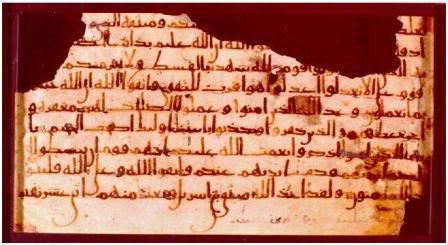 وميثقه الذي
الله ان الله عليم بذات
قومين لله شهدا بالقسط ولا يجرمنكم
قوم على الا تعدلوا اعدلوا هو اقرب للتقوى واتقوا الله ان الله
بما تعملون وعد الله الذين امنوا وعملوا الصلحت لهم مغفرة و
اجر عظيم والذين كفروا وكذبوا بايتنا اولئك اصحب الجحيم يا
الذين امنوا اذكروا نعمت الله عليكم اذ هم قوم ان يبسطوا
ايديهم فكف ايديهم عنكم واتقوا الله وعلى الله فليتو
المومنون ولقد اخذ الله ميثق بني اسريل وبعثنا منهم اثني عشر نقيبا